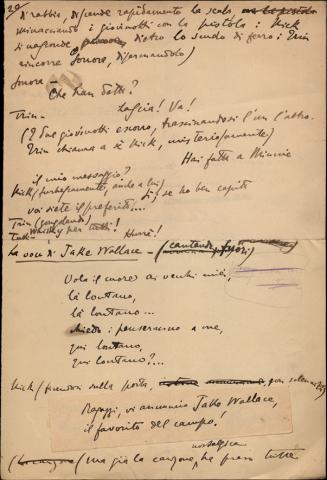 di rabbia, discende rapidamente la scala
minacciando i giovinotti con la pistola: Nick
si nasconde dietro lo scudo di ferro: Trin
rincorre Sonora, disarmandolo)
Sonora –
Che han detto?
Trin –
Lascia! Va!
(I due giovinotti escono, trascinandosi l'un l'altro.
Trin chiama a sè Nick, misteriosamente)
Hai fatto a Minnie
il mio messaggio?
Nick (furbescamente, anche a lui)
Sì, se ho ben capito
voi siete il preferito....
Trin (gongolando)
Whisky per tutti!
Tutti – Hurrà!
La voce di Jake Wallace – (cantando, fuori)
Vola il cuore ai vecchi miei,
là lontano,
là lontano...
i penseranno a me,
qui lontano,
qui lontano?...
Nick (facendosi sulla porta, con solennità)
Ragazzi, vi annuncio Jake Wallace,
il favorito del campo!
nostalgica
(ma già la canzone ha preso tutte